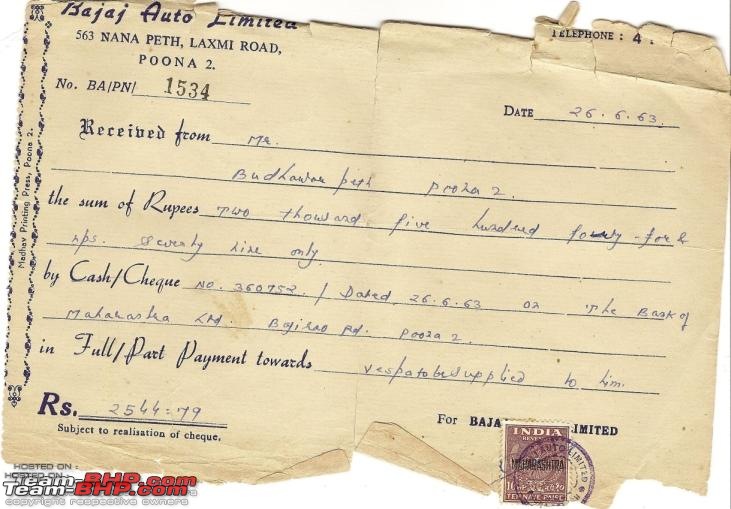 Bajaj Auto Limited
563 NANA PETH, LAXMI ROAD,
POONA 2.
TELEPHONE : 4
No. BA/PN/ 1534
DATE 26.6.63.
Received from Mr.
Budhawar peth Poona 2.
the sum of Rupees Two thousand five hundred forty-four &
nps. seventy nine only.
by Cash/Cheque No. 360752 / Dated. 26.6.63 on The Bank of
Maharashtra Ltd. Bajirao Rd. Poona 2.
in Full/Part Payment towards Vespa to be supplied to him.
Rs. 2544.79
Subject to realisation of cheque.
For BAJA LIMITED
INDIA
REVENUE
MAHARASHTRA
TEN NAYE PAISE
AUTO LIMITED
Madhav Printing Press, Poona 2.
HOSTED ON :
Team-BHP.com
copyright respective owners